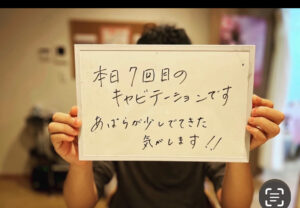 本日7回目の
キャビテーションです
あばらが少しでてきた
気がします!!